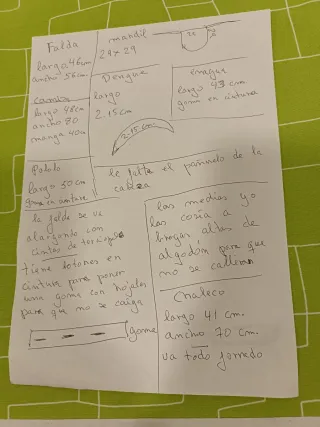 Falda
largo 46 cm
ancho 56 cm
mandil
29 x 29
29
enagua
largo 47 cm
goma en cintura
Camisa
largo 48 cm
ancho 70
manga 40 cm
Dengue
largo
2.15 cm
2.15 cm
Pololo
largo 50 cm
goma en cintura
le falta el pañuelo de la
cabeza
la falda se va
alargando con
cintas de terciopelo
tiene botones en
cintura para poner
una goma con hojales
para que no se caiga
goma
las medias yo
las cosía a
bragas altas de
algodón para que
no se callieran
Chaleco
largo 41 cm.
ancho 70 cm.
va todo forrado